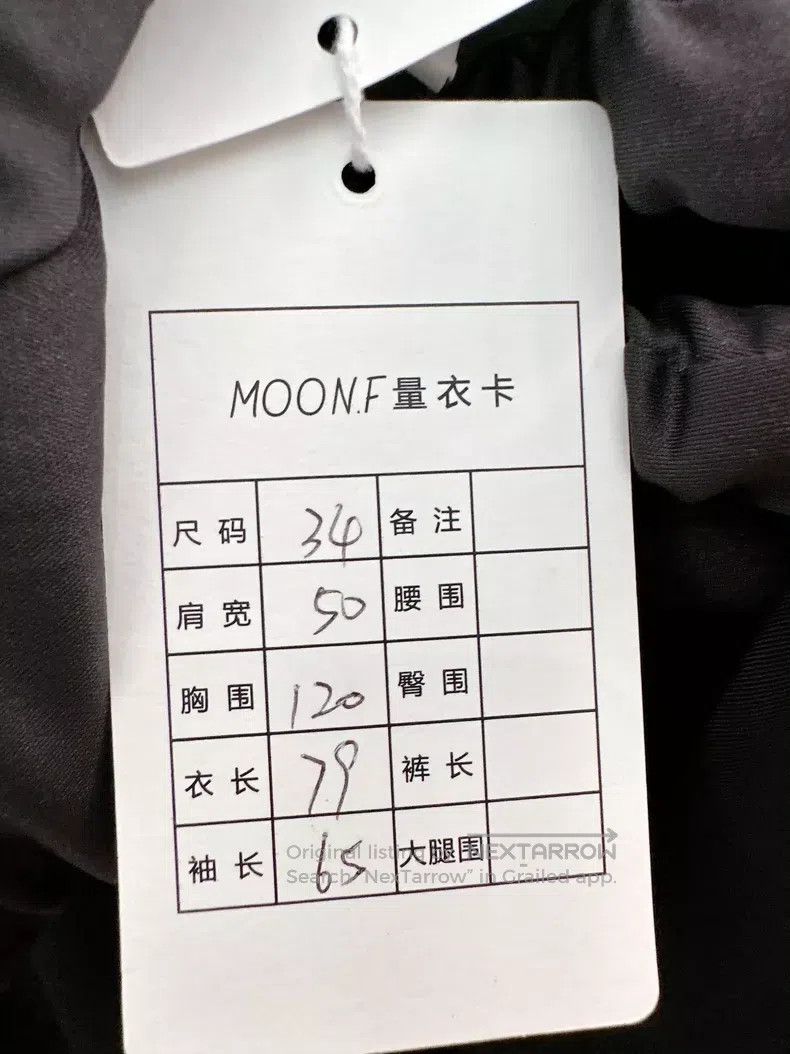 MOON.F量衣卡
尺码 34 备注
肩宽 50 腰围
胸围 120 臀围
衣长 79 裤长
袖长 65 大腿围
Original listing NEXTARROW
Search "NexTarrow" in Grailed app.